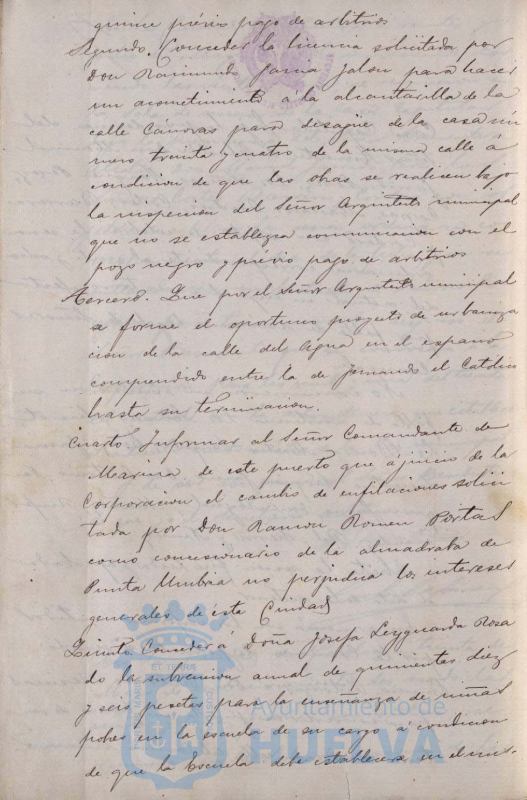 quince prévio pago de arbitrios
Segundo. Conceder la licencia solicitada por
Don Raimundo Garcia Jalon para hacer
un acometimiento á la alcantarilla de la
calle Cánovas para desagüe de la casa nú
mero treinta y cuatro de la misma calle á
condicion de que las obras se realicen bajo
la inspeccion del Señor Arquitecto municipal
que no se establezca comunicacion con el
pozo negro y prévio pago de arbitrios
Tercero. Que por el Señor Arquitecto municipal
se forme el oportuno proyecto de urbaniza
cion de la calle del Agua en el espacio
comprendido entre la de Fernando el Católico
hasta su terminacion.
Cuarto. Informar al Señor Comandante de
Marina de este puerto que á juicio de la
Corporacion el cambio de enfilaciones solici
tada por Don Ramon Romeu Portas
como concesionario de la almadraba de
Punta Umbria no perjudica los intereses
generales de esta Ciudad
Quinto. Conceder á Doña Josefa Rosa
do la subvencion anual de quinientas diez
y seis pesetas para la enseñanza de niñas
pobres en la escuela de su cargo á condicion
de que la Escuela debe establecerse en el mis-
Ayuntamiento de
HUELVA